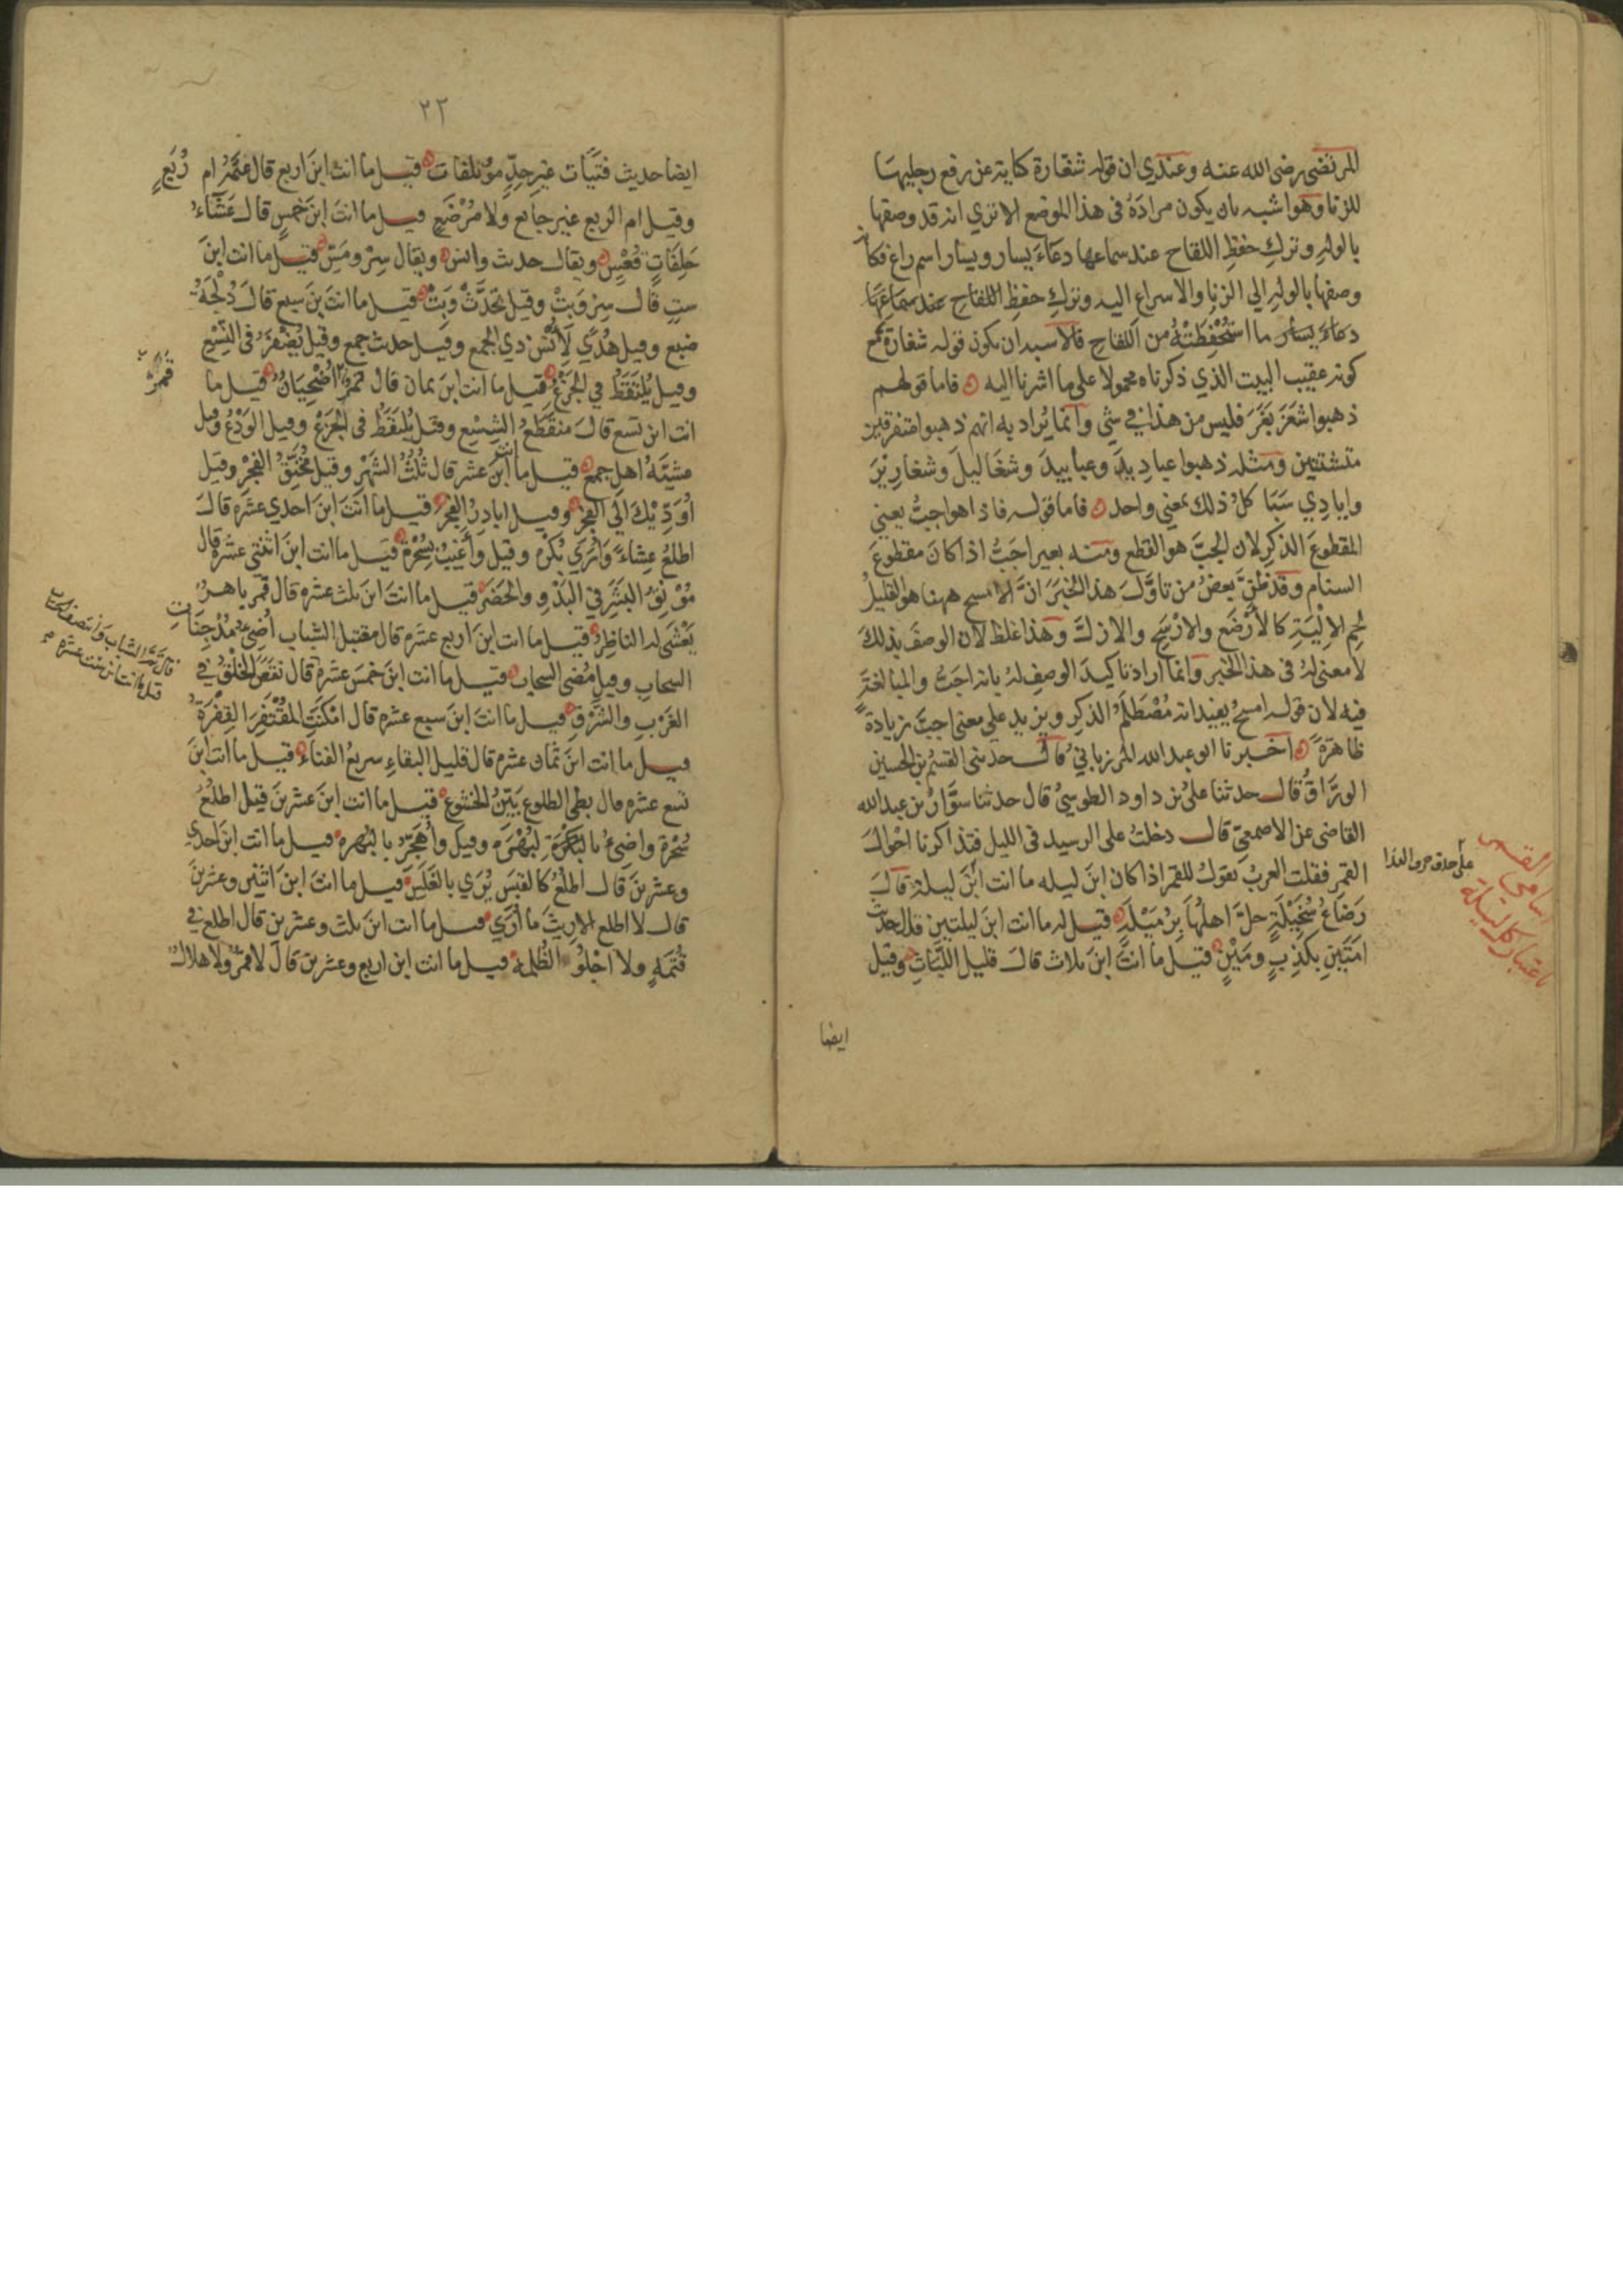 المرتضى رضى الله عنه وعندي ان قوله شغارة كناية عن رفع رجليها
للزنا وهو اشبه بان يكون مراده فى هذا الموضع الا تري انه قد وصفها
بالوله وترك حفظ اللقاح عند سماعها دعاء يسار ويسار اسم راع فكانه
وصفها بالوله الي الزنا والاسراع اليه وترك حفظ اللقاح عند سماعها
دعاء يسار ما استحفظته من اللقاح فالاشبه ان يكون قوله شغارة مع
كونه عقيب البيت الذي ذكرناه محمولا على ما اشرنا اليه فاما قولهم
ذهبوا شغر بغر فليس من هذا فى شي وانما يراد به انهم ذهبوا متفرقين
متشتتين ومثله ذهبوا عباديد وعبابيد وشعاليل وشعارير
وايادي سبا كل ذلك بمعنى واحد فاما قوله فاذا هو اجب يعني
المقطوع الذكر لان الجب هو القطع ومنه بعير اجب اذا كان مقطوع
السنام وقد ظن بعض من تاول هذا الخبر ان الامسح ههنا هو القليل
لحم الالية كالارصع والارسح والازل وهذا غلط لان الوصف بذلك
لا معنى له فى هذا الخبر وانما اراد تاكيد الوصف له بانه اجب والمبالغة
فيه لان قوله امسح يفيد انه مصطلم الذكر ويزيد على معنى اجب زيادة
ظاهرة اخبرنا ابو عبدالله المرزباني قال حدثنى القسم بن الحسين
الوراق قال حدثنا على بن داود الطوسي قال حدثنا سوار بن عبدالله
القاضى عن الاصمعي قال دخلت على الرسيد فى الليل فتذاكرنا احوال
القمر فقلت العرب تقول للقمر اذا كان ابن ليله ما انت ابن ليلة قال
رضاع سخيلة حل اهلها برميلة قيل له ما انت ابن ليلتين قال حديث
امتين بكذب ومين قيل ما انت ابن ثلاث قال قليل اللباث وقيل
ايضا
باسامى القمر
باعتبار كل ليلة
٢٢
ايضا حديث فتيات غير جد مؤتلفات قيل ما انت ابن اربع قال عتمة ام ربع
وقيل ام الربع غير جايع ولا مرضع قيل ما انت ابن خمس قال عشاء
خلفات قعس ويقال حدث وانس ويقال سر ومس قيل ما انت ابن
ست قال سر وبت وقيل تحدث وبت قيل ما انت بن سبع قال دلجة
ضبع وقيل هدي لانس ذي الجمع وقيل حدث جمع وقيل يضفر فى النسع
وقيل يلتقط في الجزع قيل ما انت ابن ثمان قال قمر اضحيان قيل ما
انت ابن تسع قال منقطع الشسع وقيل يلتقط فى الجزع وقيل الودع وقيل
عشية اهل جمع قيل ما انت ابن عشر قال ثلث الشهر وقيل مخنق الفجر وقيل
اودّيك الى الفجر وقيل ابادر الفجر قيل ما انت ابن احدي عشرة قال
اطلع عشاء وارى بكرة وقيل واغيب بسحرة قيل ما انت ابن اثنتى عشرة قال
مؤنق البشر في البدو والحضر قيل ما انت ابن ثلث عشرة قال قمر باهر
يعشى له الناظر قيل ما انت ابن اربع عشرة قال مقتبل الشباب اضى مدجنات
السحاب وقيل مضى السحاب قيل ما انت ابن خمس عشرة قال نقص الخلق في
الغرب والشرق قيل ما انت ابن سبع عشرة قال امكنت المقتفر القفرة
قيل ما انت ابن ثمان عشره قال قليل البقاء سريع الفناء قيل ما انت ابن
تسع عشره قال بطي الطلوع بين الخشوع قيل ما انت ابن عشرين قيل اطلع
سحرة واضى بالبكرة وقيل واهجر بالبهرة قيل ما انت ابن احدي
وعشرين قال اطلع كالقبس يرى بالغلس قيل ما انت ابن اثنين وعشرين
قال لا اطلع الا ريث ما اري قيل ما انت ابن ثلث وعشرين قال اطلع في
قتمة ولا اجلو الظلمة قيل ما انت ابن اربع وعشرين قال لا قمر ولا هلال
قمر